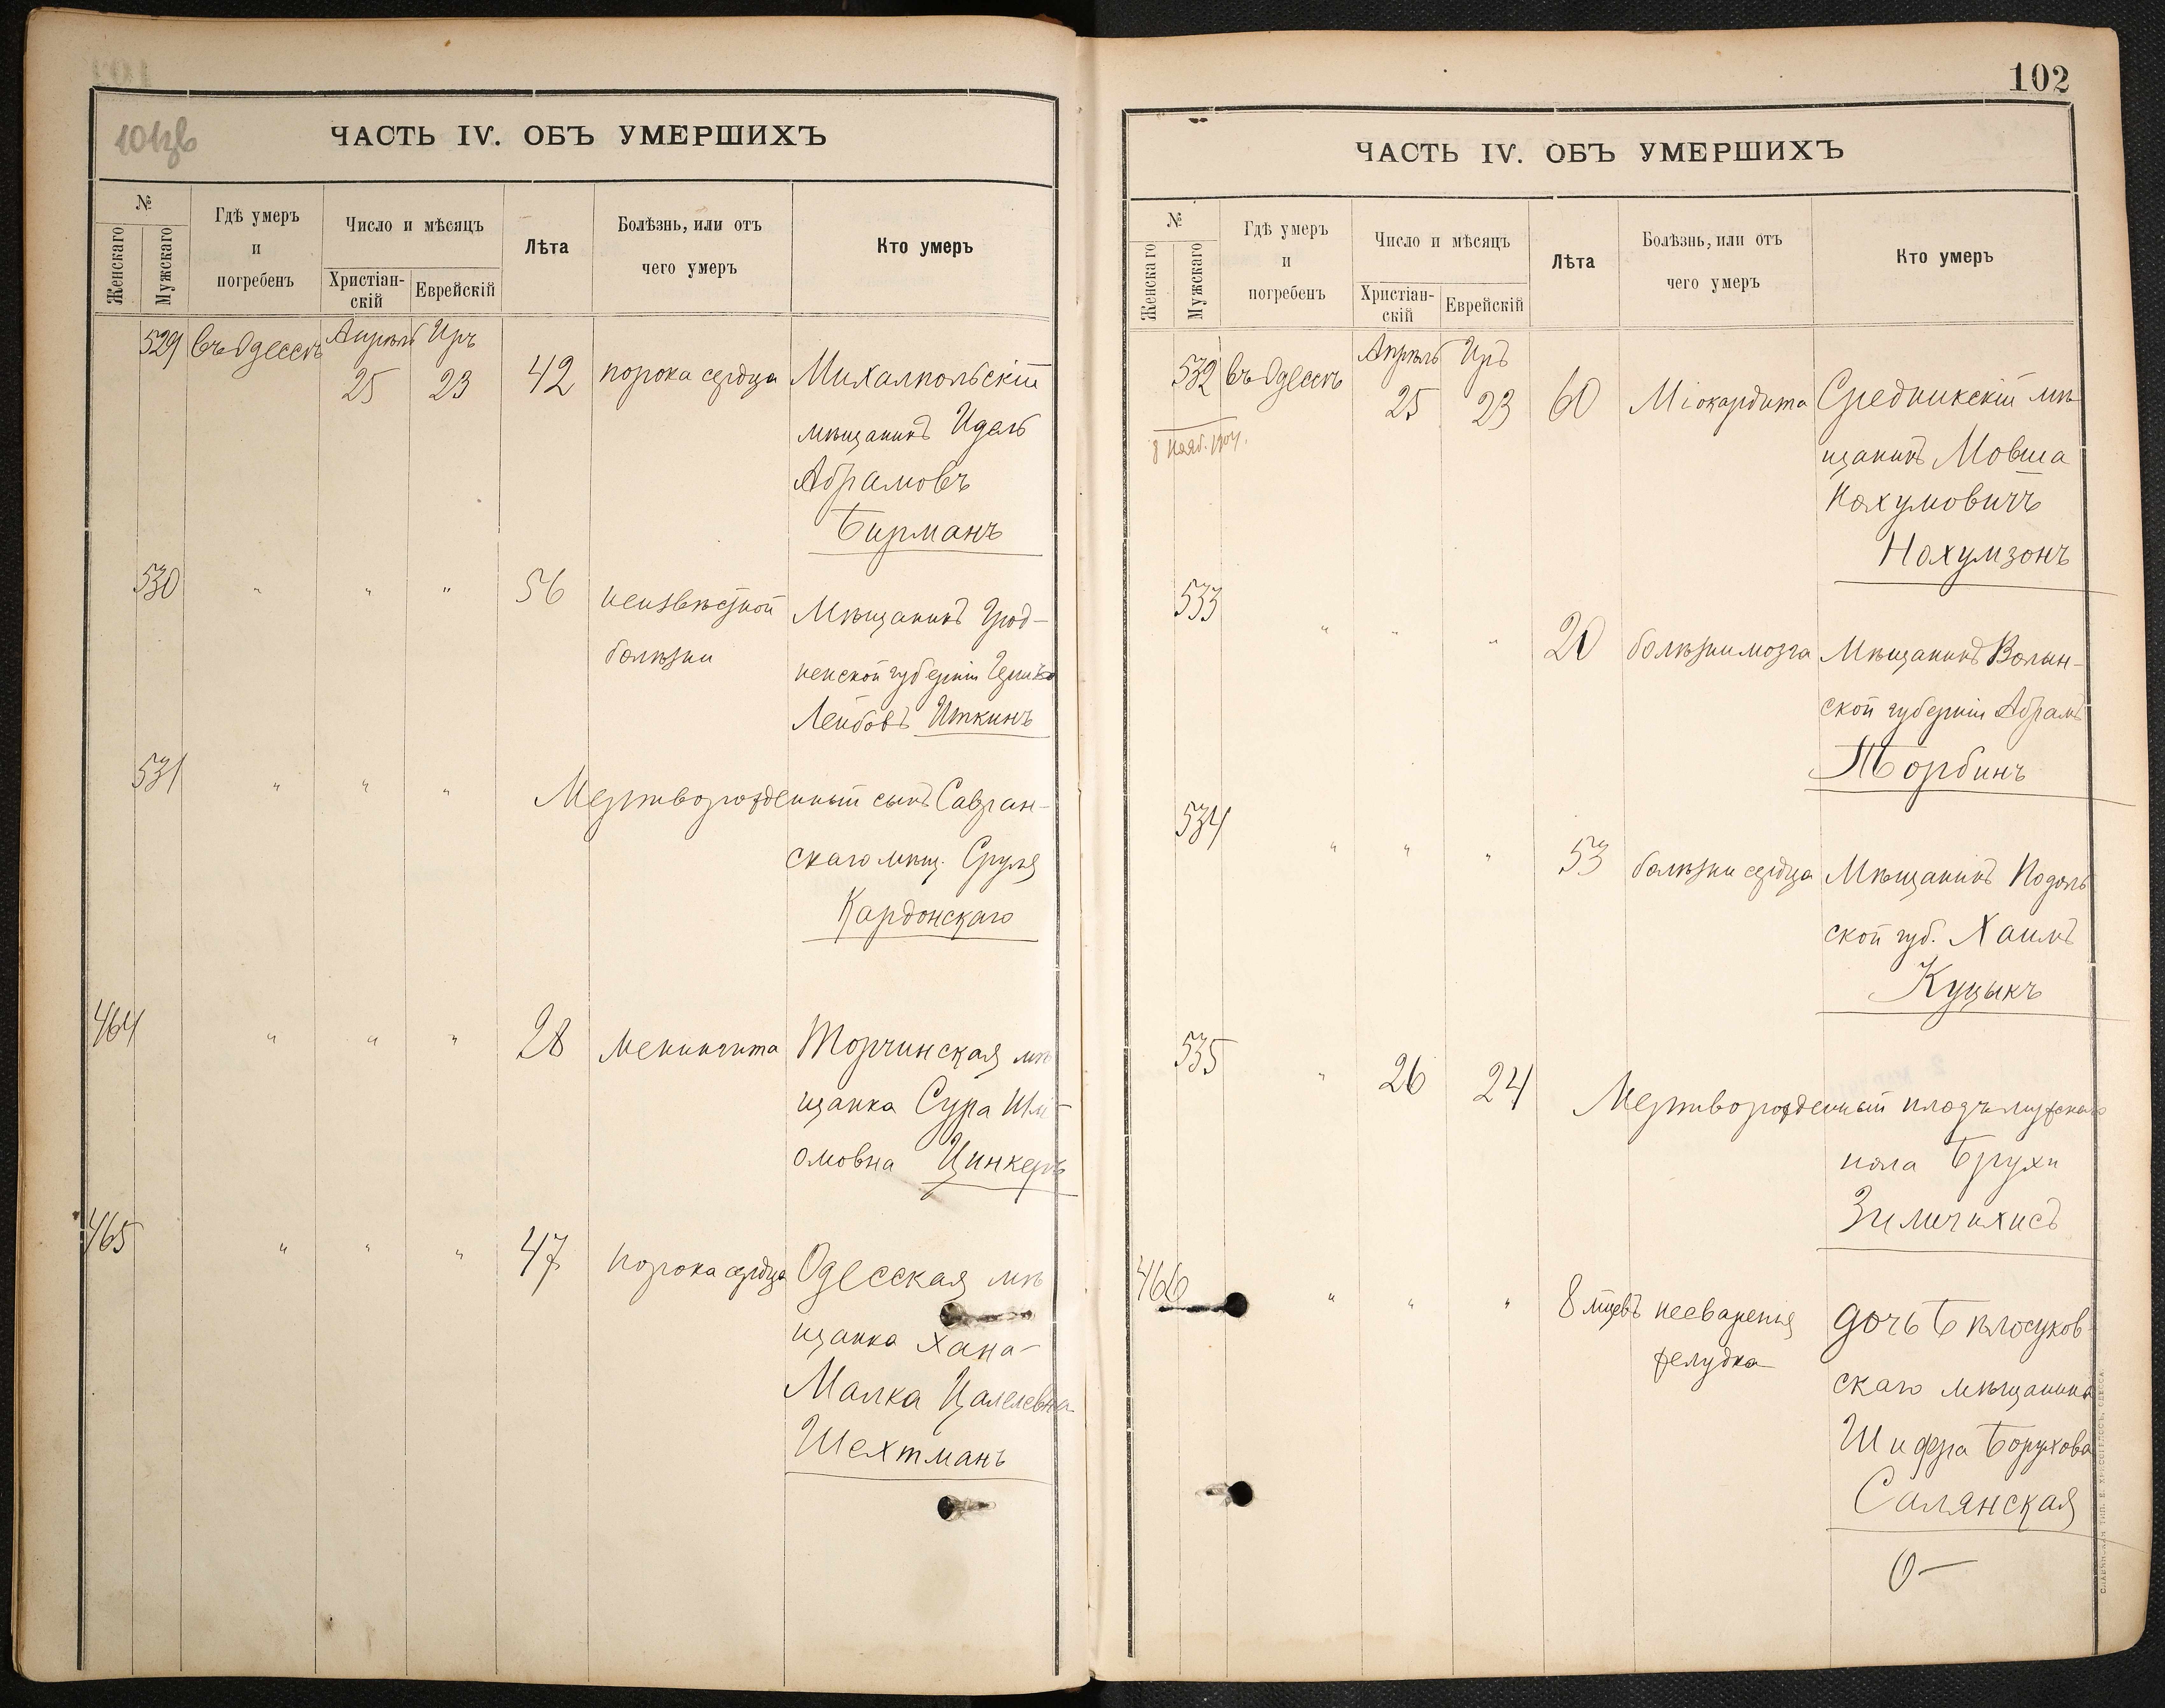 ЧАСТЬ IV. ОБЪ УМЕРШИХЪ
№
Женскаго
Мужскаго
Гдѣ умеръ
и
погребенъ
Число и мѣсяцъ
Христіан-
скій
Еврейскій
Лѣта
Болѣзнь, или отъ
чего умеръ
Кто умеръ
529 въ Одессѣ Апрѣль Иръ
25 23 42 порока сердца Михалпольскій
мѣщанинъ Идель
Абрамовъ
Бирманъ
530 " " " 56 неизвѣстной Мѣщанинъ Грод-
болѣзни
ненской губерніи
Лейбовъ Иткинъ
531 " " " Мертворожденный сынъ Савран-
скаго мѣщ. Сруля
Кардонскаго
464 " " " 28 Менингита Торчинская мѣ
щанка Сура Шлі-
омовна Цинкеръ
465 " " " 47 порока сердца Одесская мѣ
щанка Хана-
Малка Цалелевна
Шехтманъ
102
ЧАСТЬ IV. ОБЪ УМЕРШИХЪ
№
Женскаго
Мужскаго
Гдѣ умеръ
и
погребенъ
Число и мѣсяцъ
Христіан-
скій
Еврейскій
Лѣта
Болѣзнь, или отъ
чего умеръ
Кто умеръ
532 въ Одессѣ Апрѣль Иръ
25 23 60 Міокардита Средникскій мѣ
щанинъ Мовша
8 Нояб. 1904.
Нахумовичъ
Нахумзонъ
533 " " " 20 болѣзни мозга Мѣщанинъ Волын-
ской губерніи Абрамъ
Торбинъ
534 " " " 53 болѣзни сердца Мѣщанинъ Подоль
ской губ. Хаимъ
Куцыкъ
535 " 26 24 Мертворожденный плодъ мужскаго
пола Брухи
Зиличихисъ
466 " " " 8 мцевъ несваренія дочь Бѣлосуков-
желудка
скаго мѣщанина
Шифра Борухова
Салянская
СЛАВЯНСКАЯ ТИП. Е. ХРИСОГЕЛОСЪ, ОДЕССА